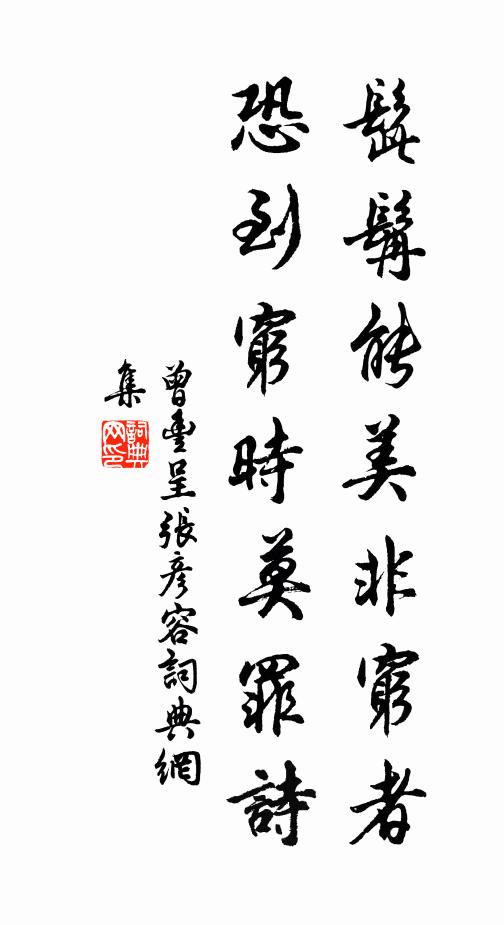 髭髯能美非窮者
恐到窮時莫罪詩
曾豐呈張彥容詞典網
集
詞典
网印